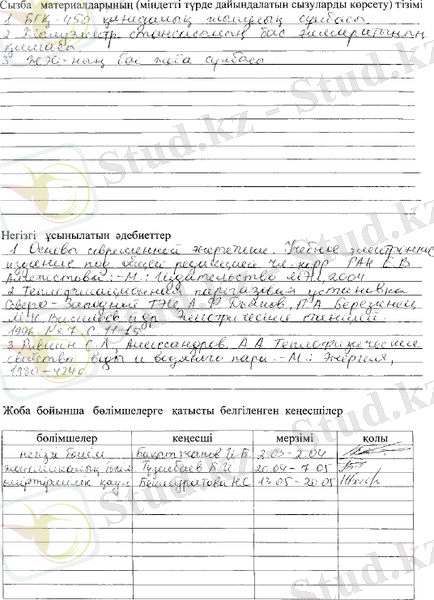 Сызба материалдарының (міндетті түрде дайындалатын сызуларды көрсету) тізімі
1 БГҚ-450 қондырғының жылулық сұлбасы
2 Жылу электр станциясының бас ғимаратының
қимасы
3 ЖЭС-ның бас жоба сұлбасы
Негізгі ұсынылатын әдебиеттер
1 Основы современной энергетики. Учебное электронное
издание под общей редакцией чл.-корр РАН Е.В
Аметистова :-М: Издательство МЭИ, 2004
2 Теплофикационная парогазовая установка
Северо-Западной ТЭЦ А.Ф Дьяков, П.А Березинец
М.К. Васильев и др. Электрические станции
1996 №7 С 11-15
3 Ривкин С.Л. Александров А.А Теплофизические
свойства воды и водяного пара :-М: Энергия,
1980-424с
Жоба бойынша бөлімшелерге қатысты белгіленген кеңесшілер
бөлімшелер кеңесші мерзімі қолы
негізгі бөлім Бақытжанов И.Б 2.03-2.04
экономикалық бөлім Тузелбаев Б.И 20.04-7.05
өміртіршілік қауіп Бегимбетова 13.05-20.05
Stud.kz